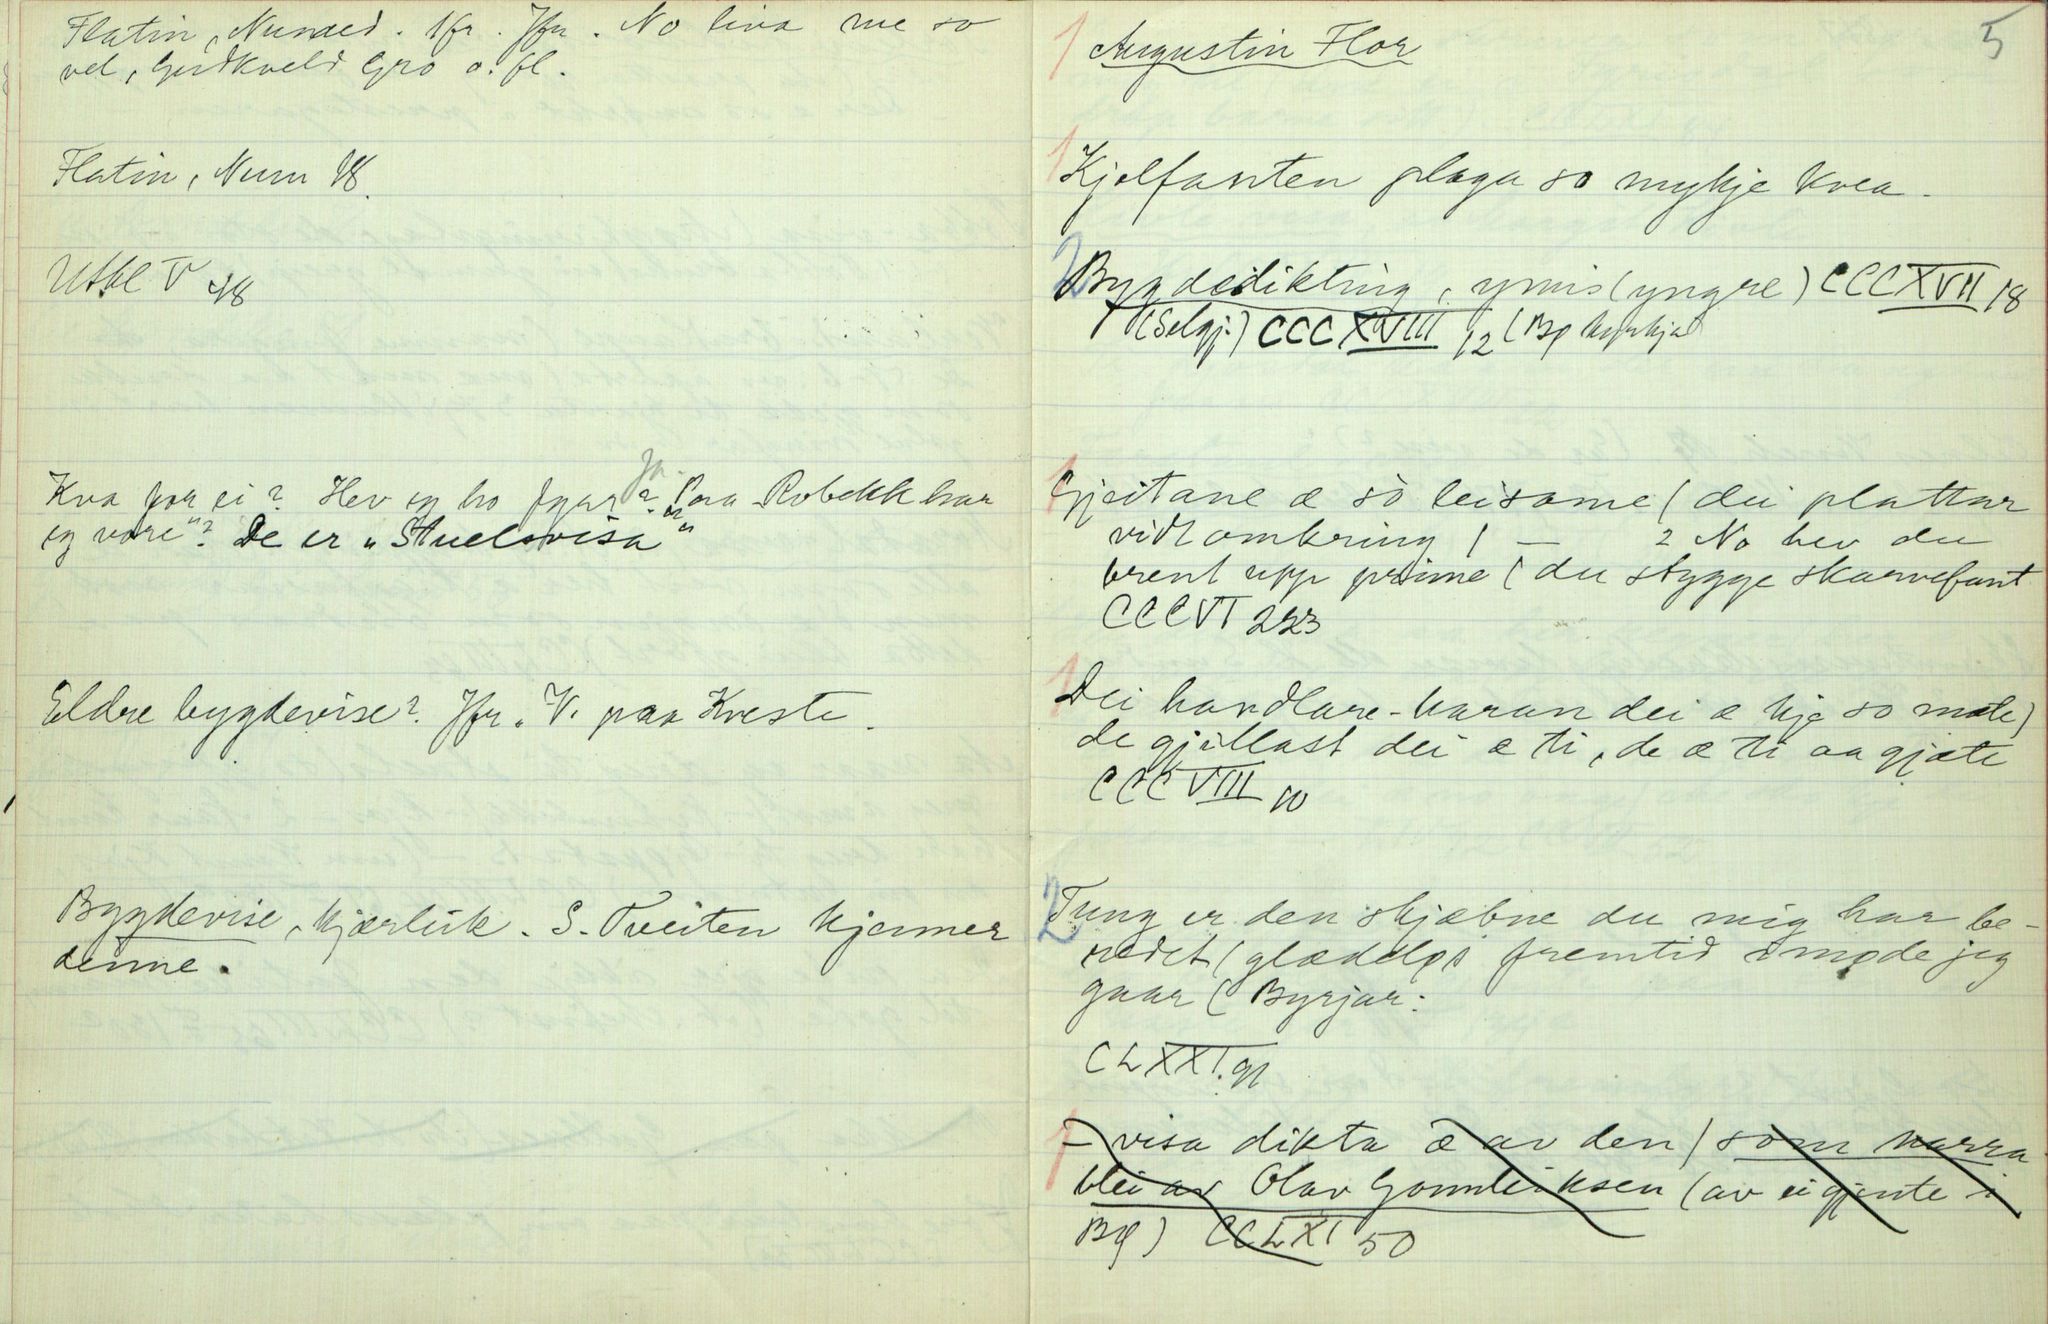 Flatin, Numed. 1fr. Jfr. No liva me so
vel, Gudkveld Gro o. fl.
Flatin, Num 18.
Utkl V 48
Kva for ei? Hev eg ho fyrr? Ja. "Paa Robekk har
eg vore"? De er "Stuelsvisa"
Eldre bygdevise? Jfr. V. paa Kveste.
Bygdevise, kjærleik. S. Tveiten kjenner
denne.
5
1 Augustin Flor
1 Kjelfanten plaga so mykje kvea.
2 Bygdedikting, ymis (yngre) CCCXVII 18
(Selgj.) CCCXVIII 12 (Bø kyrkja
1 Gjeitane æ so leisame / dei plattar
vidt omkring / — 2 No hev du
brent upp prime / du stygge skarvefant
CCCVI 223
1 Dei handlare-karan dei æ kje so mate /
de gjillast dei æ ti, de æ ti aa gjæte
CCCVIII 10
2 Tung er den skjæbne du mig har be-
redet / glædeløs fremtid imøde jeg
gaar / Byrjar:
CLXXI. 91
1 - visa dikta æ av den / som narra
blei av Olav Gonnleiksen (av ei gjente i
Bø) CCLXI 50